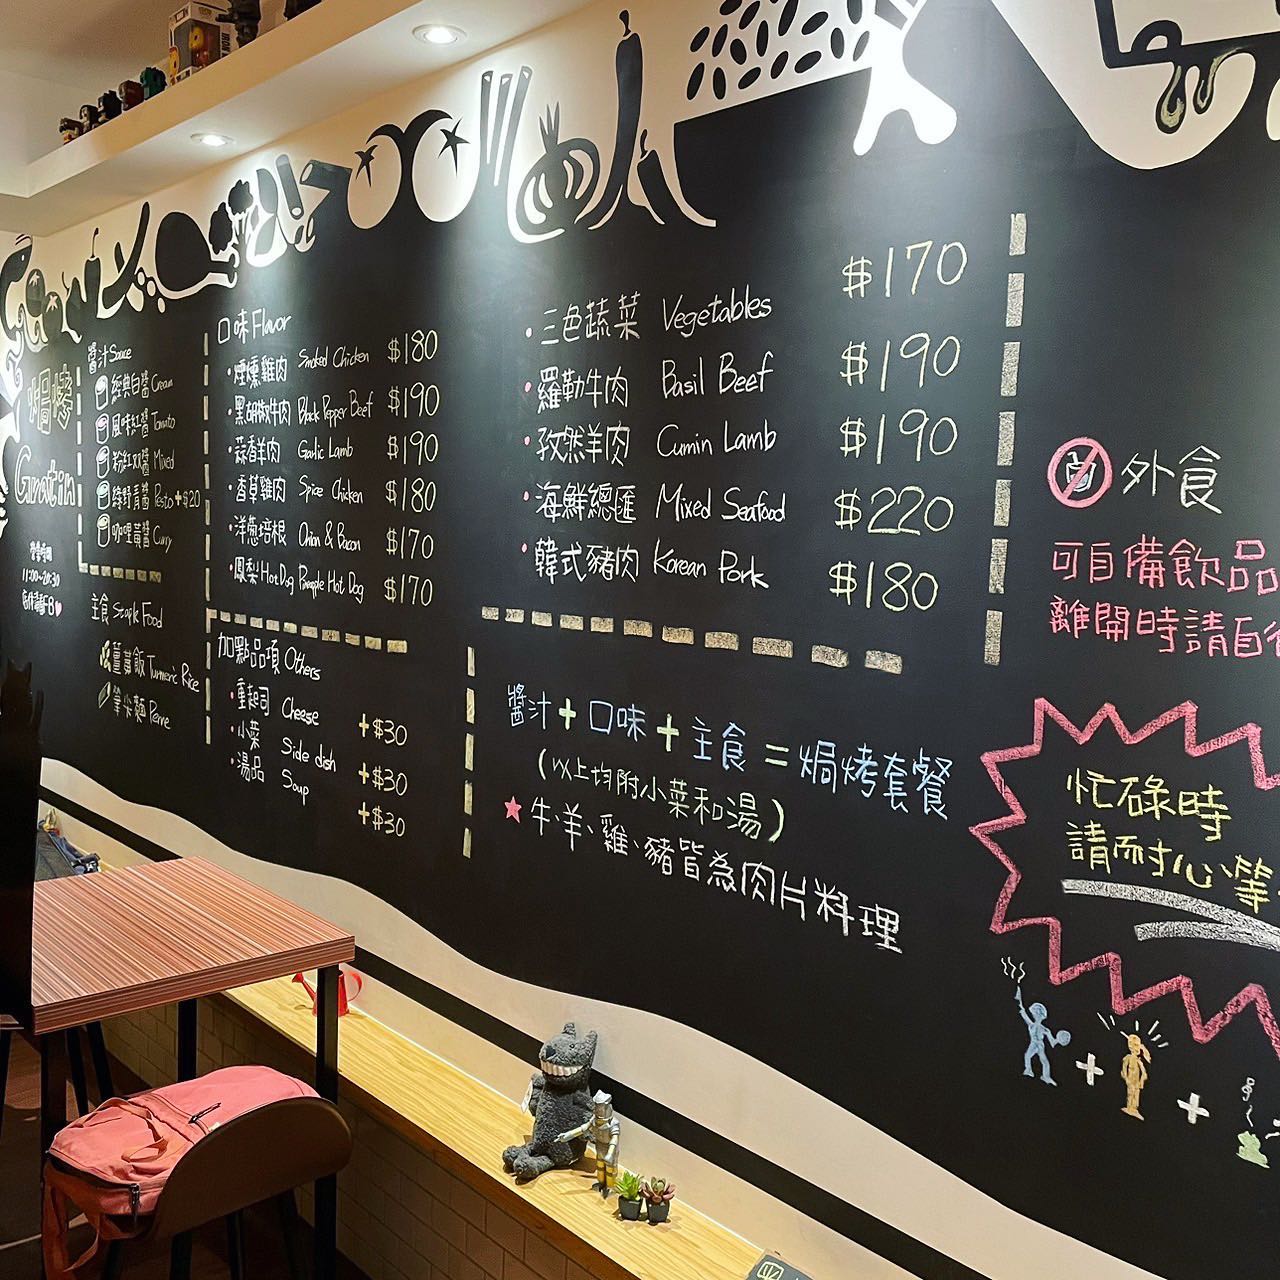 焗烤
Gratin
營業時間
11:00~20:30
醬汁 Sauce
經典白醬 Cream
風味紅醬 Tomato
粉紅双醬 Mixed
綠野青醬 Pesto +$20
咖哩黃醬 Curry
主食 Staple Food
薑黃飯 Turmeric Rice
筆尖麵 Penne
口味 Flavor
·煙燻雞肉 Smoked Chicken $180
·黑胡椒牛肉 Black Pepper Beef $190
·蒜香羊肉 Garlic Lamb $190
·香草雞肉 Spice Chicken $180
·洋蔥培根 Onion & Bacon $170
·鳳梨Hot Dog Pineapple Hot Dog $170
加點品項 Others
·重起司 Cheese +$30
·小菜 Side dish +$30
·湯品 Soup +$30
·三色蔬菜 Vegetables $170
·羅勒牛肉 Basil Beef $190
·孜然羊肉 Cumin Lamb $190
·海鮮總匯 Mixed Seafood $220
·韓式豬肉 Korean Pork $180
醬汁+口味+主食=焗烤套餐
(以上均附小菜和湯)
★牛、羊、雞、豬皆為肉片料理
外食
可自備飲品
離開時請自
忙碌時
請耐心等
+ +